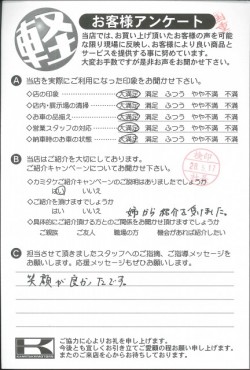 軽
お客様アンケート
当店では、お買い上げ頂いたお客様の声を可能
な限り現場に反映し、お客様により良い商品と
サービスを提供する事に努めています。
大変お手数ですが是非お声をお聞かせ下さい。
A 当店を実際にご利用になった印象をお聞かせ下さい。
◇店の印象 大満足 満足 ふつう やや不満 不満
◇店内・展示場の清掃 大満足 満足 ふつう やや不満 不満
◇お車の品揃え 大満足 満足 ふつう やや不満 不満
◇営業スタッフの対応 大満足 満足 ふつう やや不満 不満
◇納車時のお車の状態 大満足 満足 ふつう やや不満 不満
B 当店はご紹介を大切にしております。
ご紹介キャンペーンについてお聞かせ下さい。
◇カミタケご紹介キャンペーンのご説明はありましたでしょうか
はい いいえ
◇ご紹介を頂けますでしょうか
はい いいえ
姉から紹介で来ました。
◇具体的にご紹介頂ける方とのご関係をお聞かせ頂けますでしょうか
ご親族 ご友人 職場の方 機会があれば紹介したい
C 担当させて頂きましたスタッフへのご指摘、ご指導メッセージを
お願いします。応援メッセージもぜひお願いします。
笑顔が良かったです。
K
ご協力に心よりお礼を申し上げます。
今後とも宜しくお引き立てご愛顧の程お願い申し上げます。
またのご来店を心からお待ちしております。